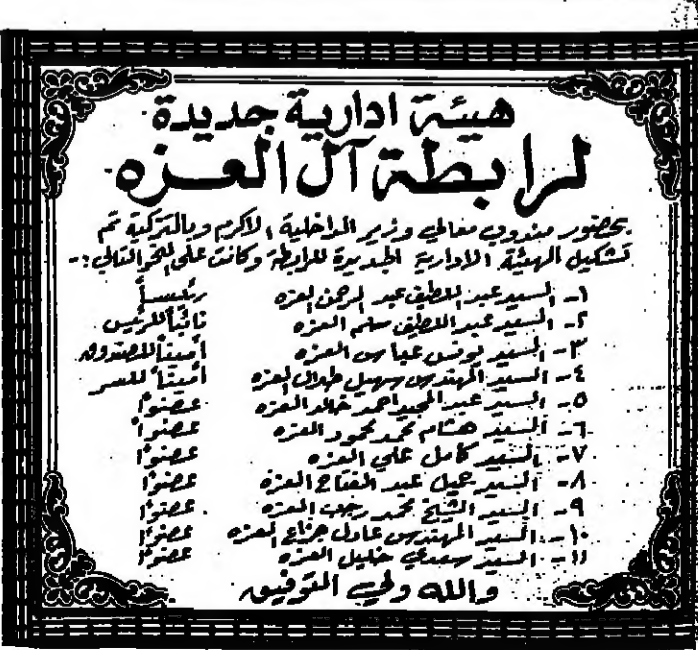 هيئة ادارية جديدة
لرابطة آل العزه
بحضور مندوب معالي وزير الداخلية الاكرم وبالتزكية تم
تشكيل الهيئة الادارية الجديدة للرابطة وكانت على النحو التالي :-
١- السيد عبد اللطيف عبد الرحمن العزه رئيساً
٢- السيد عبد اللطيف سلم العزه نائباً للرئيس
٣- السيد يونس عباس العزه أميناً للصندوق
٤- السيد المهندس سهيل طلال العزه أميناً للسر
٥- السيد عبد المجيد احمد خالد العزه عضواً
٦- السيد هشام محمد محمود العزه عضواً
٧- السيد كامل علي العزه عضواً
٨- السيد جميل عبد الفتاح العزه عضواً
٩- السيد الشيخ محمد رجب العزه عضواً
١٠- السيد المهندس عادل العزه عضواً
١١- السيد سعدي خليل العزه عضواً
والله ولي التوفيق